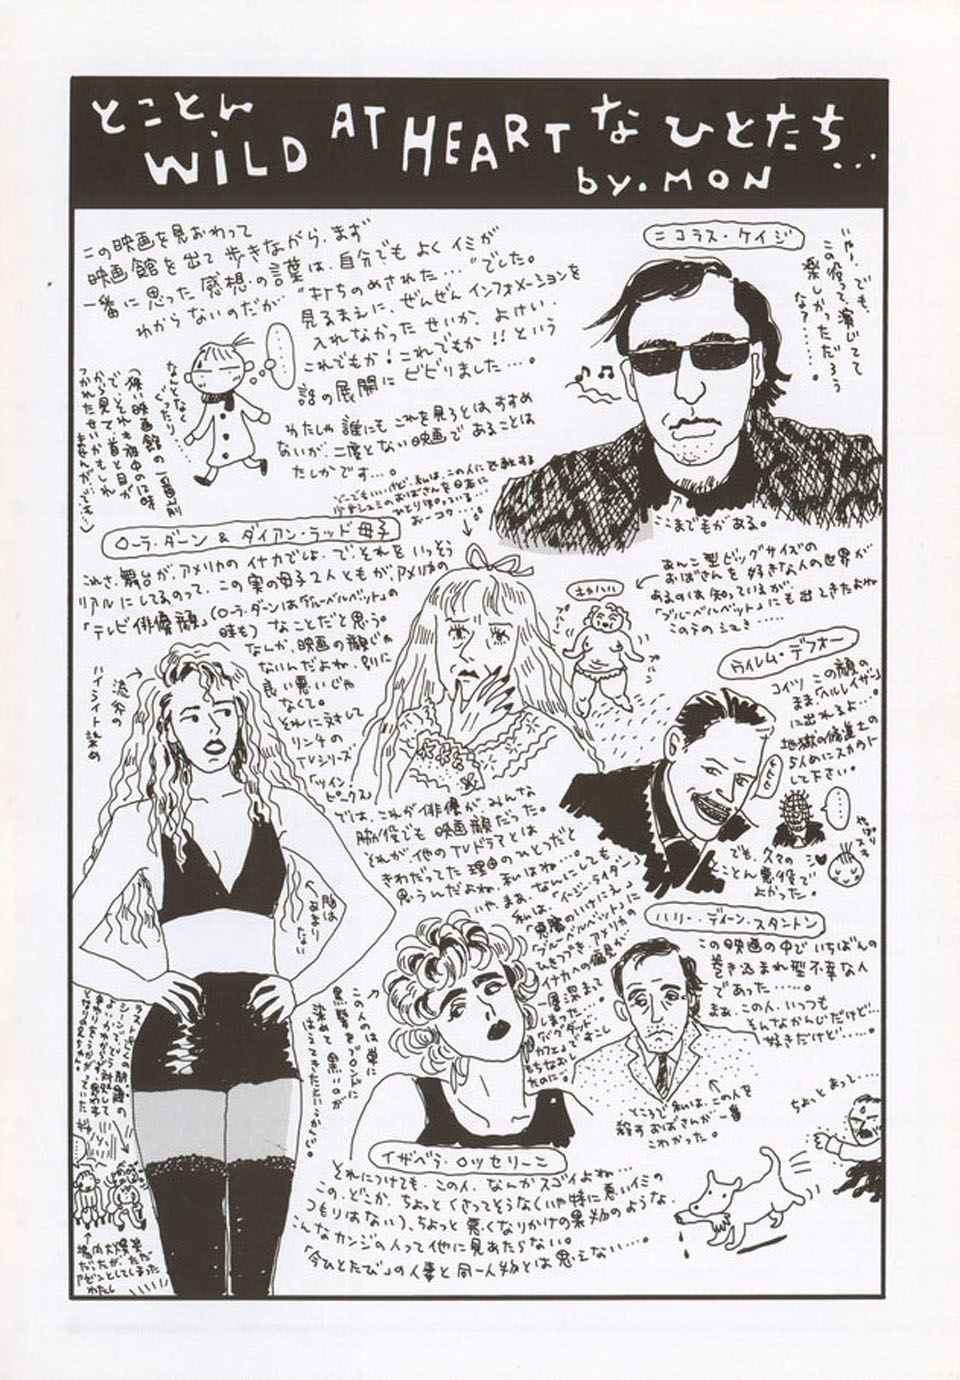 とことん
WILD AT HEART なひとたち…
by.MON
この映画を見おわって
映画館を出て歩きながら、まず
一番に思った感想の言葉は、自分でもよくイミが
わからないのだが "打ちのめされた…"でした。
見るまえに、ぜんぜんインフォメーションを
入れなかったせいか、よけい、
これでもか！これでもか!!という
話の展開にビビりました…。
わたしゃ誰にもこれを見ろとは、すすめ
ないが、二度とない映画であることは
たしかです…。
なんとなく
ぐったり…
ニコラス・ケイジ
いやー、でも、
この役って、演じてて
楽しかっただろう
な？……。
ここまでもがある。
ローラ・ダーン & ダイアン・ラッド母子
これさ、舞台が、アメリカのイナカでしょ、でそれをいっそう
リアルにしてるのって、この実の母子2人ともが、アメリカの
「テレビ俳優顔」(ローラ・ダーンは「ブルーベルベット」の
時も)なことだと思う。
なんか、映画の顔じゃ
ないんだよね、別に
良い悪いじゃ
なくて。
それに対して
リンチの
TVシリーズ
「ツイン・
ピークス」
では、これが俳優がみんな
脇役でも映画顔だった。
それが他のTVドラマとは
きわだってた理由のひとつだと
思うんだよね、私はね…。
流木の
ハイライト染め
脇は
あまり
ない
あんこ型ビッグサイズの
おばさんを好きな人の世界が
あるのは知っているが、
「ブルーベルベット」にも出てきたよね
この方の
ウイレム・デフォー
コイツこの顔の
まま「ヘルレイザー」
に出れるよ…。
地獄の修道士の
5人めにスカウト
して下さい。
でも、久々の
とことん悪役で
よかった。
やっぱスキ
ハリー・ディーン・スタントン
この映画の中でいちばんの
巻き込まれ型不幸な人
であった……。
まぁ、この人、いつつも
そんなかんじだけど…
好きだけど……。
ところで私は、この人を
殺すおばさんが一番
こわかった。
いや、まあ、なんにしても、
私は、「イージー・ライダー」
「悪魔のいけにえ」
「ブルーベルベット」に
ひきつづき、アメリカの
イナカへの偏見が
一層深まって
しまった…
「バグダッド
カフェ」ですこし
もちなおし
たのに。
この人のは単に
黒髪をブロンドに
染めて 黒いのが
はえてきたというかんじ。
イザベラ・ロッセリーニ
それにつけても、この人、なんかスゴイよね…
この、どこか、ちょっとくさってそうな(いや特に悪いイミの
つもりはない)、ちょっと悪くなりかけの果物のような、
こんなカンジの人って他に見あたらない。
「今ひとたび」の人妻と同一人物とは思えない…。
ちょっと
まって…
場内大爆笑
だったが、ただ
ボンとしてしまった
わたし